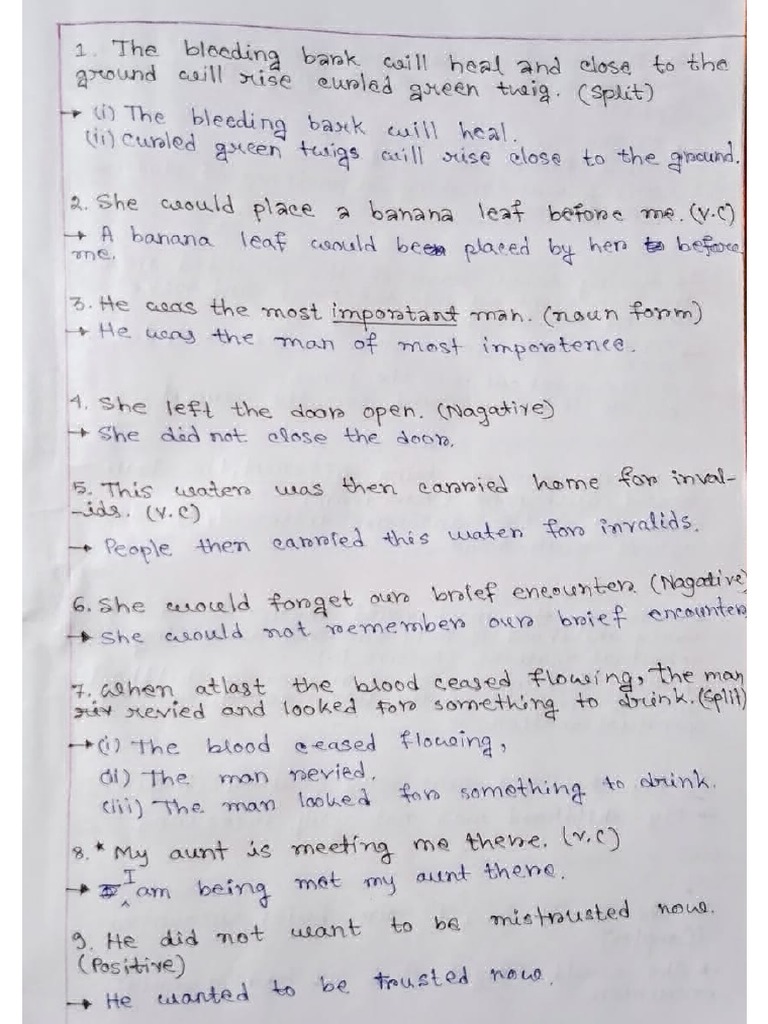 1. The bleeding bark will heal and close to the
ground will rise curled green twig. (Split)
→ (i) The bleeding bark will heal.
(ii) Curled green twigs will rise close to the ground.
2. She would place a banana leaf before me. (V.C)
→ A banana leaf would be placed by her before
me.
3. He was the most important man. (noun form)
→ He was the man of most importence.
4. She left the door open. (Nagative)
→ She did not close the door.
5. This water was then carried home for inval-
-ids. (V.C)
→ People then carried this water for invalids.
6. She would forget our brief encounter. (Nagative)
→ She would not remember our brief encounter
7. When atlast the blood ceased flowing, the man
revied and looked for something to drink. (Split)
→ (i) The blood ceased flowing,
(ii) The man revied.
(iii) The man looked for something to drink.
8. * My aunt is meeting me there. (V.C)
→ I am being met my aunt there.
9. He did not want to be mistrusted now.
(Positive)
→ He wanted to be trusted now.